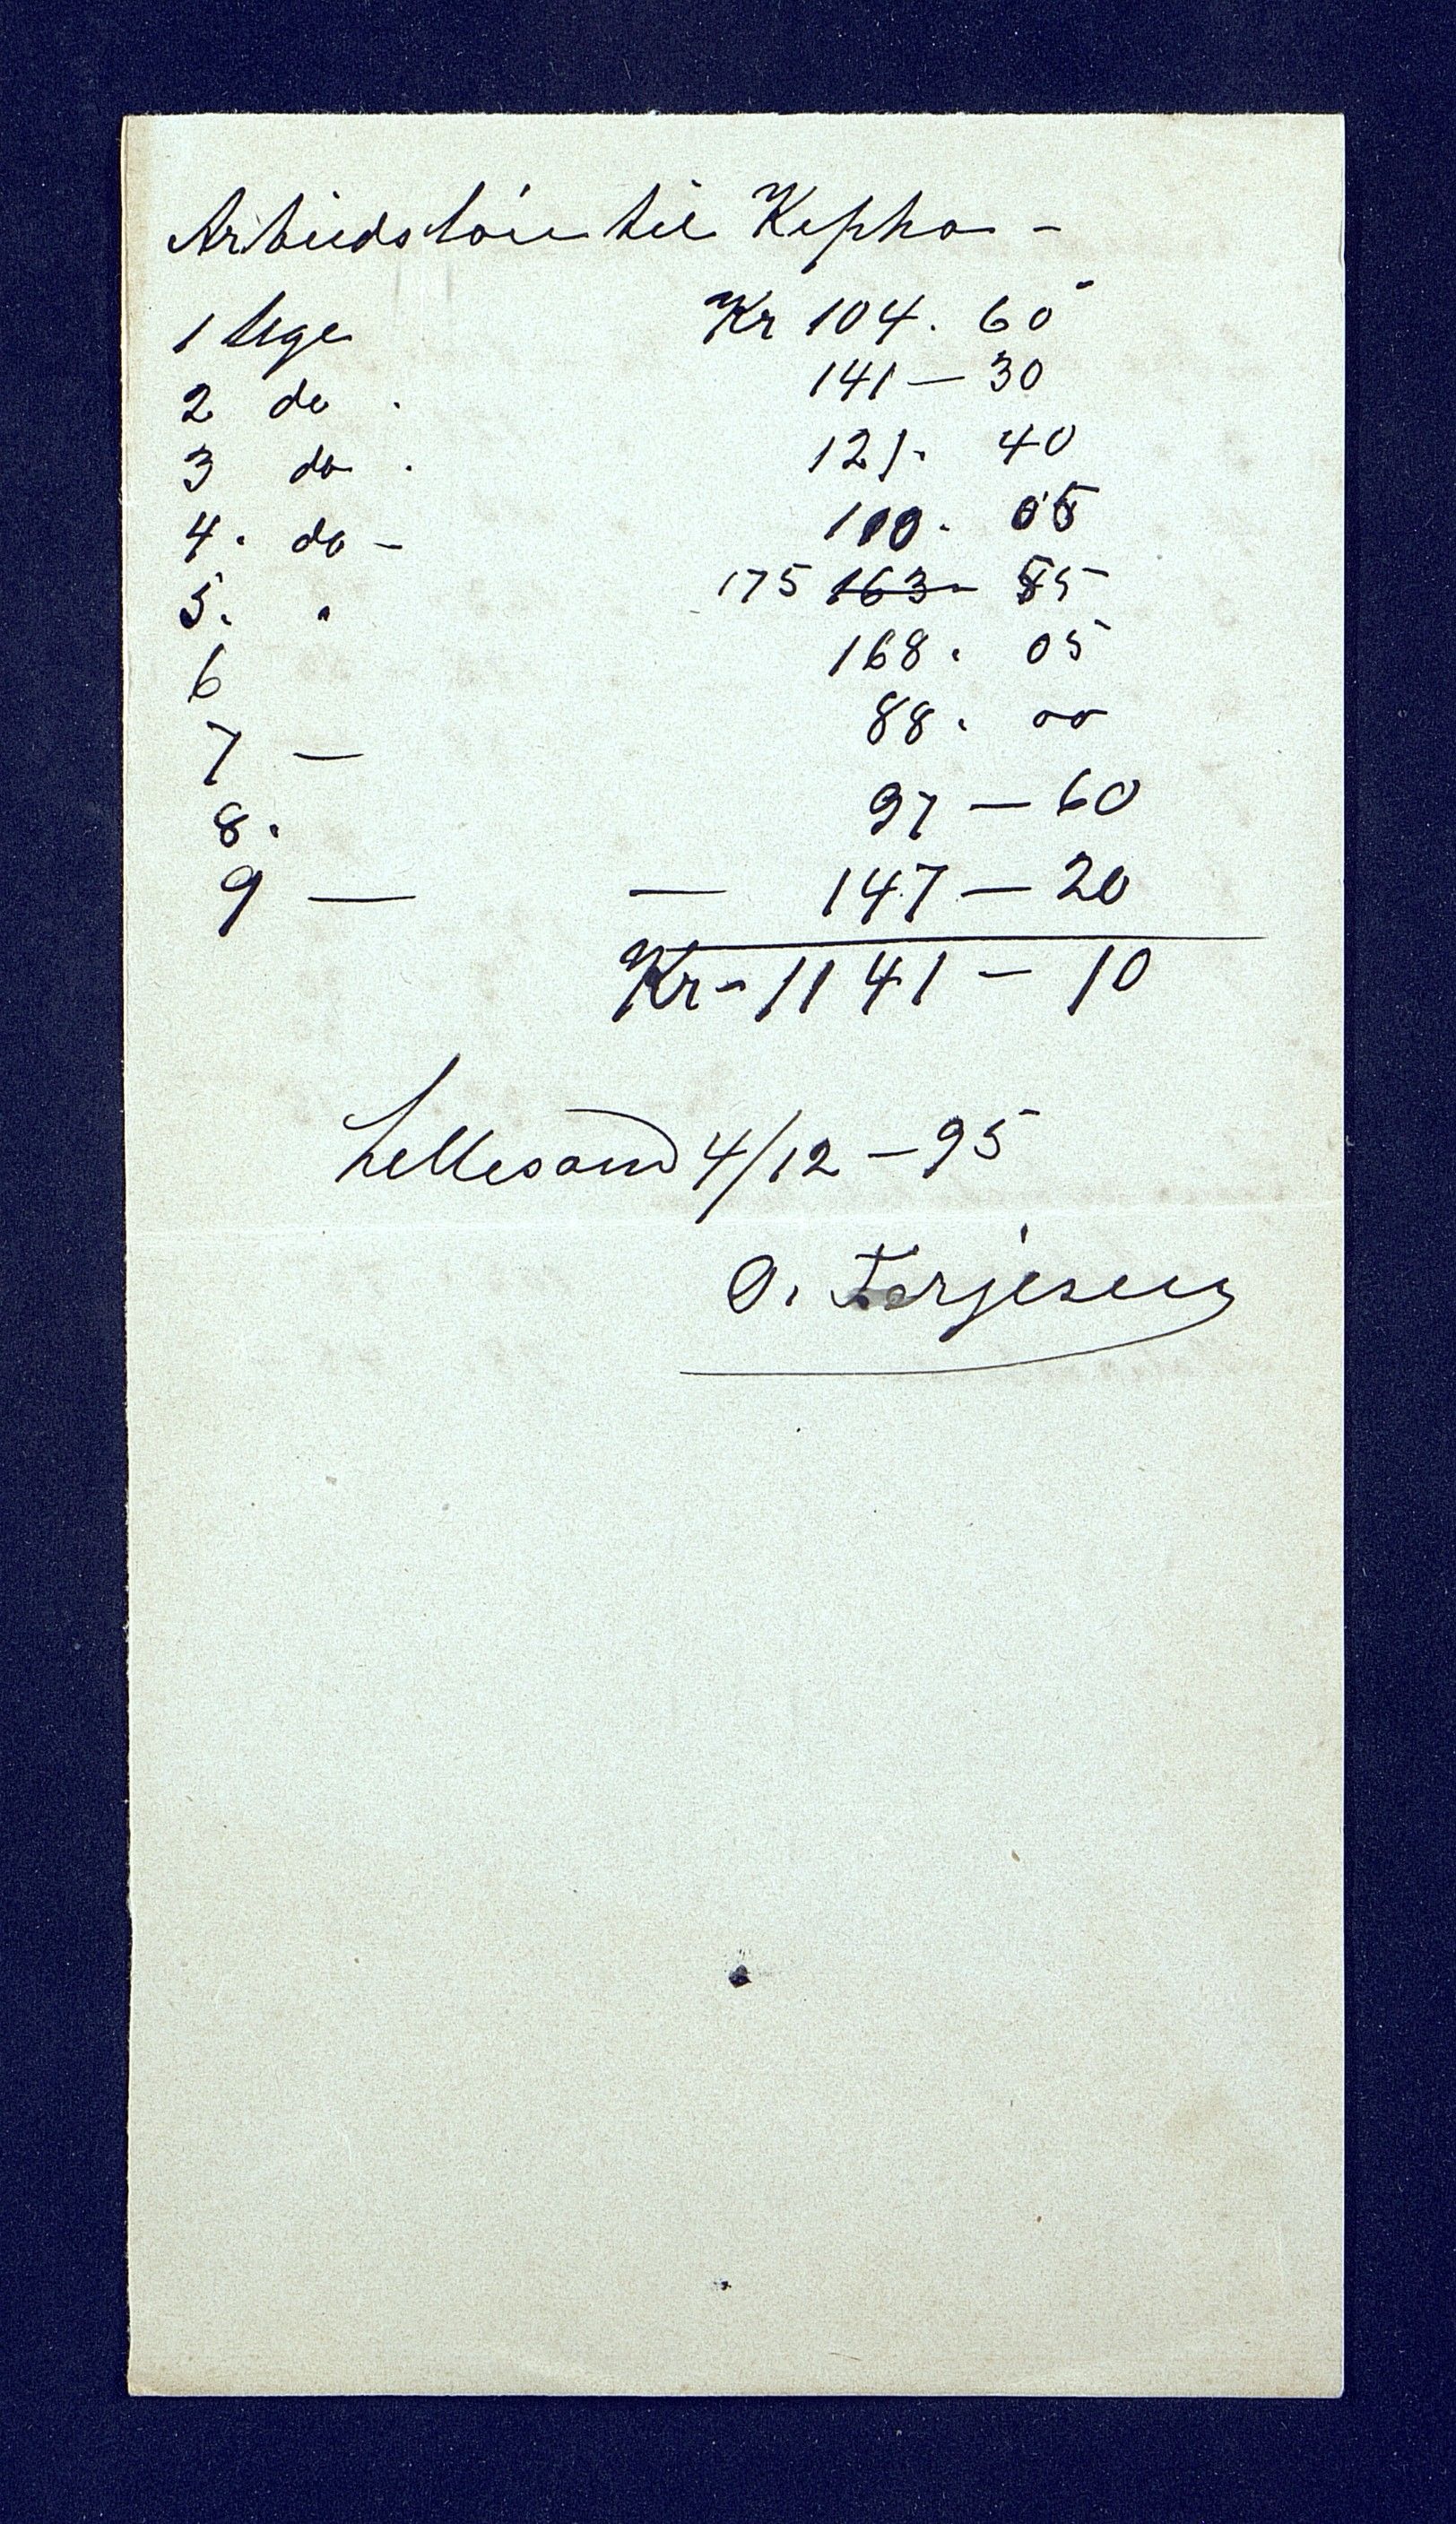 Arbeidsløn til Kepha -
1 Uge Kr 104. 60
2 do . 141 — 30
3 do . 121. 40
4. do - 100. 05
5. " 175 163- 85
6 168. 05
7 — 88. 00
8. 97 — 60
9 — — 147 — 20
Kr - 1141 — 10
Lillesand 4/12 — 95
O. Terjesen